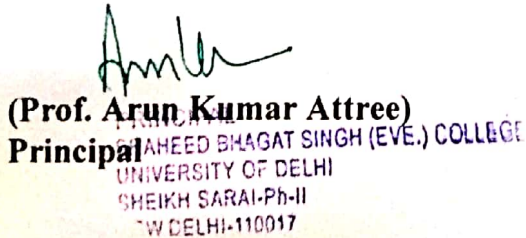 (Prof. Arun Kumar Attree)
PRINCIPAL
Principal
SHAHEED BHAGAT SINGH (EVE.) COLLEGE
UNIVERSITY OF DELHI
SHEIKH SARAI-Ph-II
NEW DELHI-110017